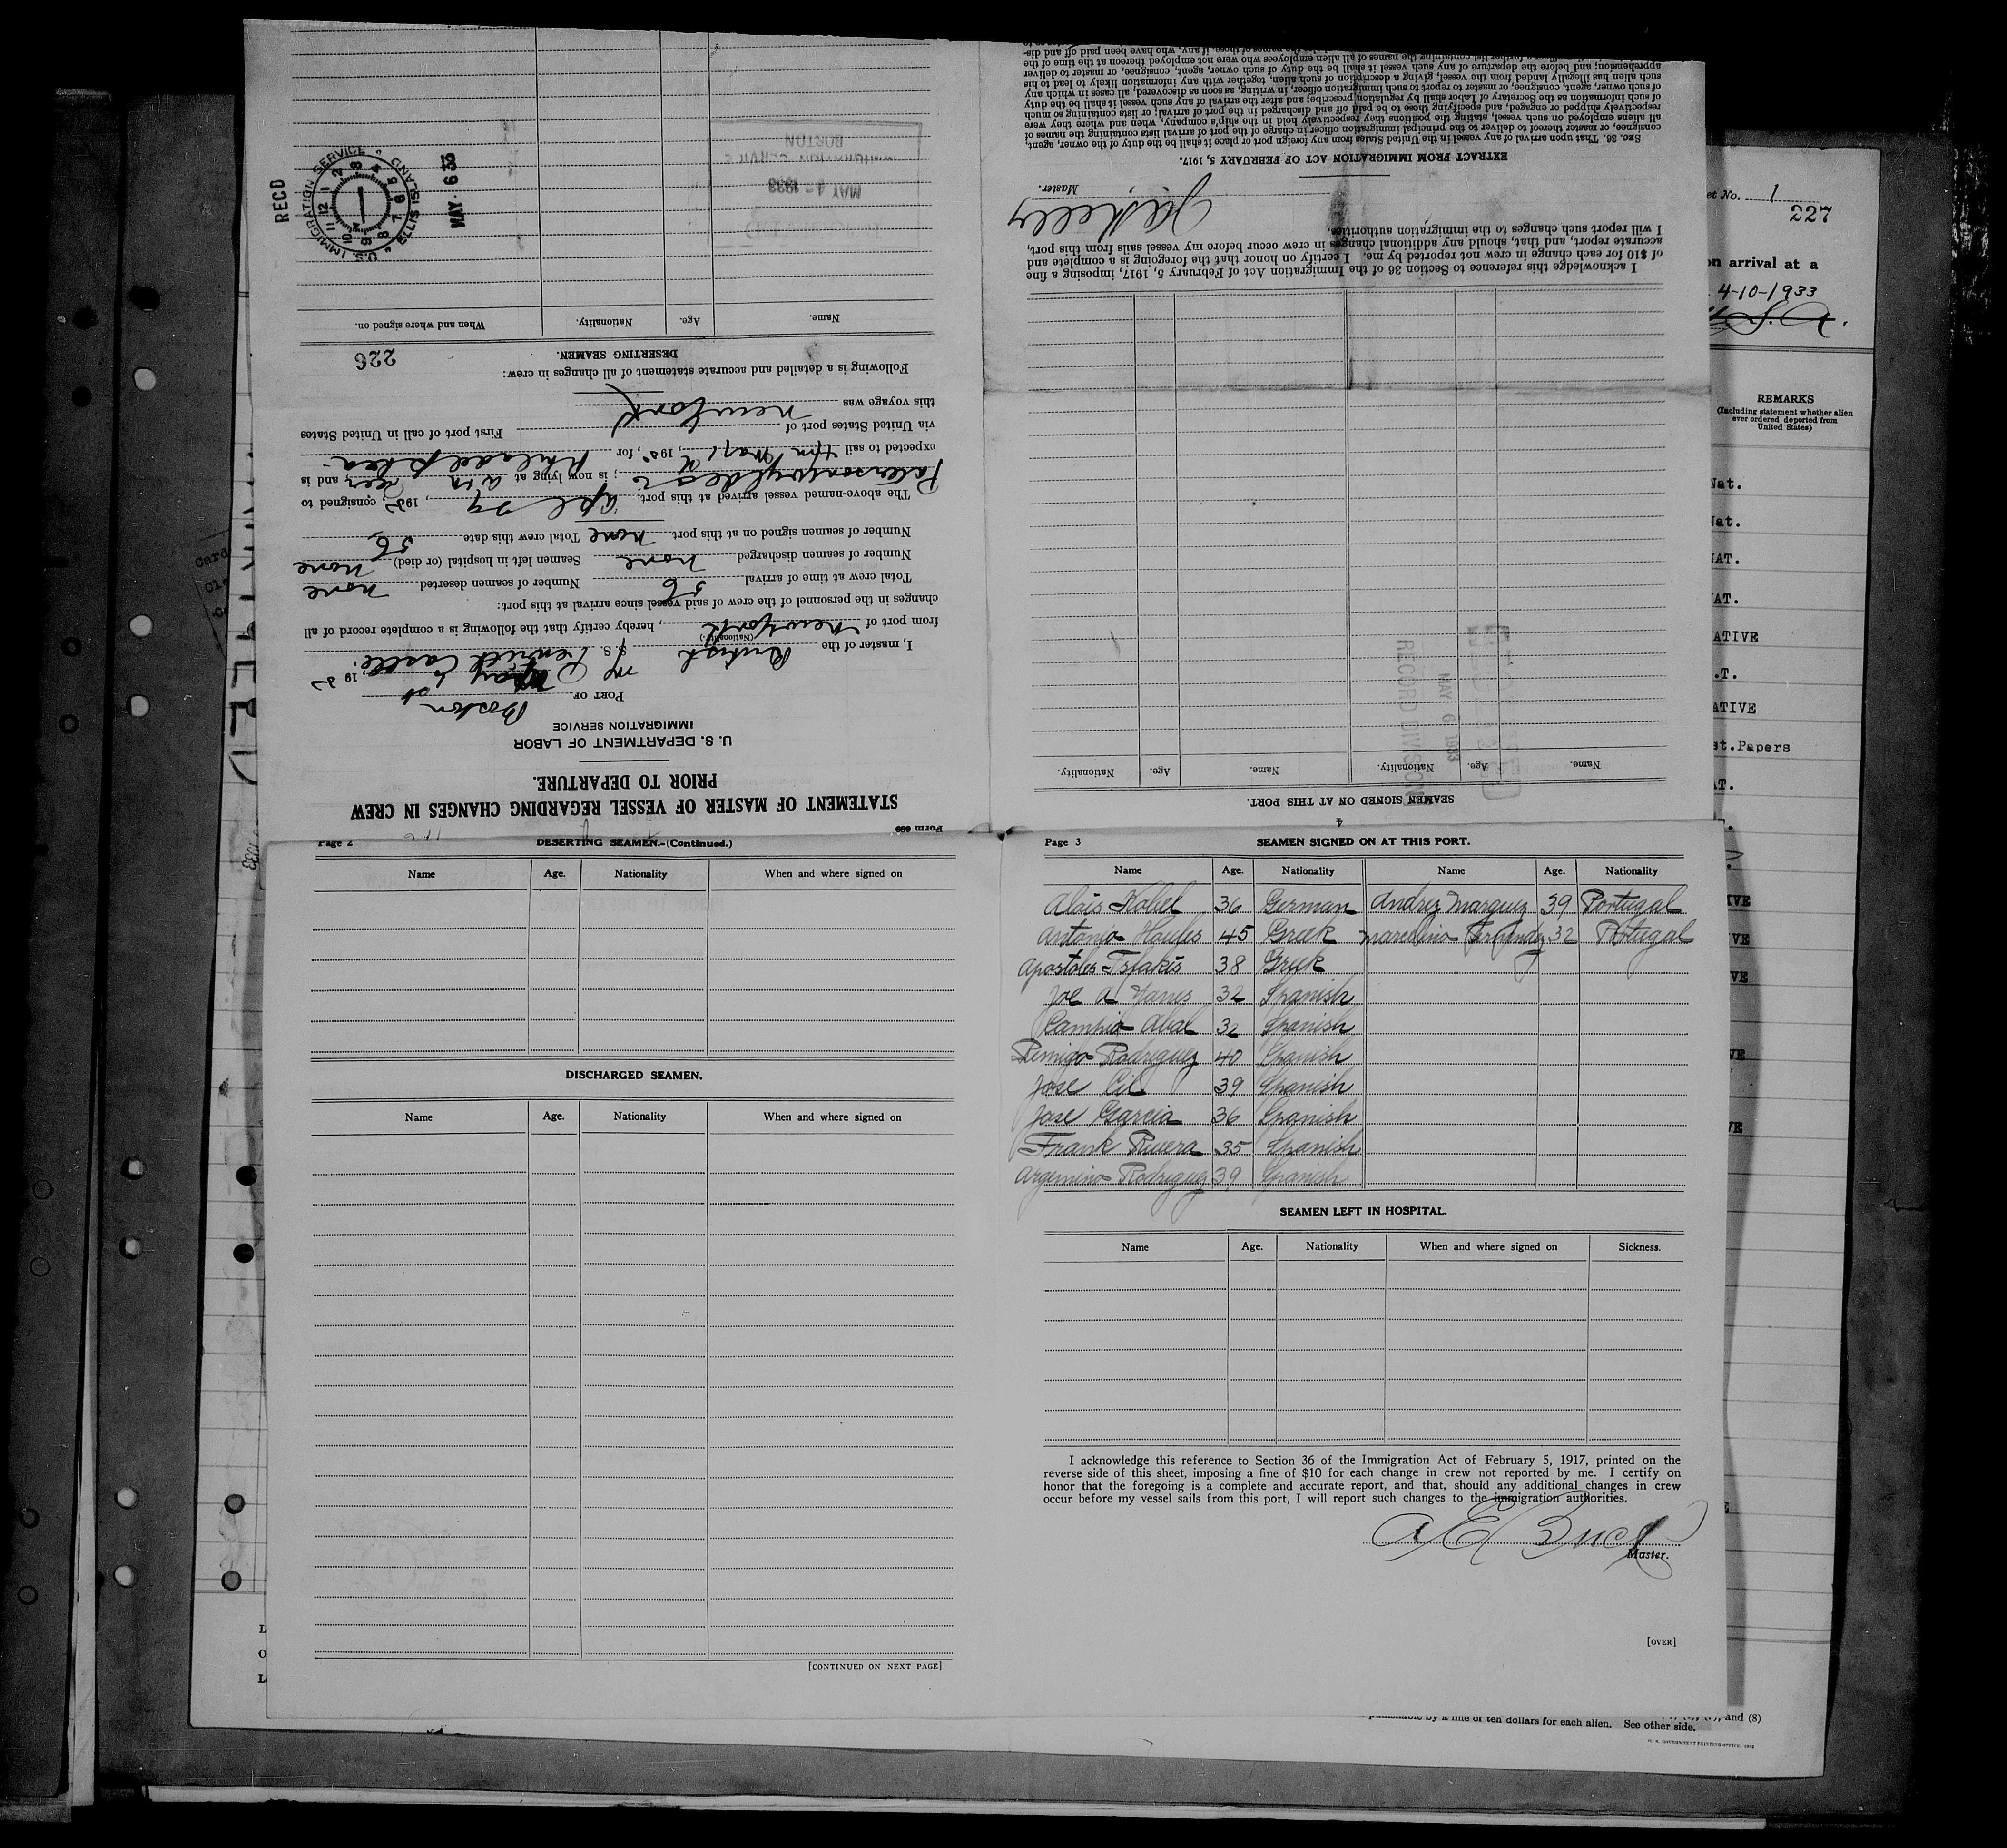 Sheet No. 1
227
on arrival at a
4-10-1933
REMARKS
(Including statement whether alien
ever ordered deported from
United States)
Nat.
Nat.
NAT.
NAT.
NATIVE
.T.
NATIVE
st.Papers
AT.
IVE
VE
VE
VE
VE
Form 689
STATEMENT OF MASTER OF VESSEL REGARDING CHANGES IN CREW
PRIOR TO DEPARTURE.
U. S. DEPARTMENT OF LABOR
IMMIGRATION SERVICE
PORT OF Boston
May 1st, 193
I, master of the British S. S.
(Nationality.)
from port of New York, hereby certify that the following is a complete record of all
changes in the personnel of the crew of said vessel since arrival at this port:
Total crew at time of arrival 56 Number of seamen deserted none
Number of seamen discharged none Seamen left in hospital (or died) none
Number of seamen signed on at this port none Total crew this date 56
The above-named vessel arrived at this port Apl 29, 193, consigned to
; is now lying at ; and is
expected to sail 4pm May 1, 193, for Philadelphia
via United States port of First port of call in United States
this voyage was New York
Following is a detailed and accurate statement of all changes in crew:
DESERTING SEAMEN.
226
Name. Age. Nationality. When and where signed on.
RECD
U.S. IMMIGRATION SERVICE
ELLIS ISLAND
MAY 6 33
MAY 4 - 1933
BOSTON
4
SEAMEN SIGNED ON AT THIS PORT.
Name. Age. Nationality. Name. Age. Nationality.
MAY 6 1933
RECORD DIVISION
I acknowledge this reference to Section 36 of the Immigration Act of February 5, 1917, imposing a fine
of $10 for each change in crew not reported by me. I certify on honor that the foregoing is a complete and
accurate report, and that, should any additional changes in crew occur before my vessel sails from this port,
I will report such changes to the immigration authorities.
Master.
EXTRACT FROM IMMIGRATION ACT OF FEBRUARY 5, 1917.
SEC. 36. That upon arrival of any vessel in the United States from any foreign port or place it shall be the duty of the owner, agent,
consignee, or master thereof to deliver to the principal immigration officer in charge of the port of arrival lists containing the names of
all aliens employed on such vessel, stating the positions they respectively hold in the ship's company, when and where they were
respectively shipped or engaged, and specifying those to be paid off and discharged in the port of arrival; or lists containing so much
of such information as the Secretary of Labor shall by regulation prescribe; and after the arrival of any such vessel it shall be the duty
of such owner, agent, consignee, or master to report to such immigration officer, in writing, as soon as discovered, all cases in which any
such alien has illegally landed from the vessel, giving a description of such alien, together with any information likely to lead to his
apprehension; and before the departure of any such vessel it shall be the duty of such owner, agent, consignee, or master to deliver
further list containing the names of all alien employees who were not employed thereon at the time of the
names of those, if any, who have been paid off and dis-
Page 2 DESERTING SEAMEN.-(Continued.)
Name Age. Nationality When and where signed on
DISCHARGED SEAMEN.
Name Age. Nationality When and where signed on
[CONTINUED ON NEXT PAGE]
Page 3 SEAMEN SIGNED ON AT THIS PORT.
Name Age. Nationality Name Age. Nationality
Alois Kobel 36 German Andrez Marquez 39 Portugal
Antonio 45 Greek Marcelino Fernandez 32 Portugal
Apostolos Tsfakis 38 Greek
Joe A Yanes 32 Spanish
Campio Abal 32 Spanish
Remigo Rodriguez 40 Spanish
Jose Gil 39 Spanish
Jose Garcia 36 Spanish
Frank Rivera 35 Spanish
Argemino Rodriguez 39 Spanish
SEAMEN LEFT IN HOSPITAL.
Name Age. Nationality When and where signed on Sickness.
I acknowledge this reference to Section 36 of the Immigration Act of February 5, 1917, printed on the
reverse side of this sheet, imposing a fine of $10 for each change in crew not reported by me. I certify on
honor that the foregoing is a complete and accurate report, and that, should any additional changes in crew
occur before my vessel sails from this port, I will report such changes to the immigration authorities.
Master.
[OVER]
and (8)
by a fine of ten dollars for each alien. See other side.
U. S. GOVERNMENT PRINTING OFFICE: 1932